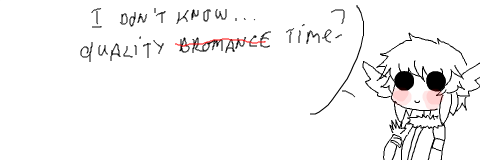 I DON'T KNOW...
QUALITY BROMANCE TIME?